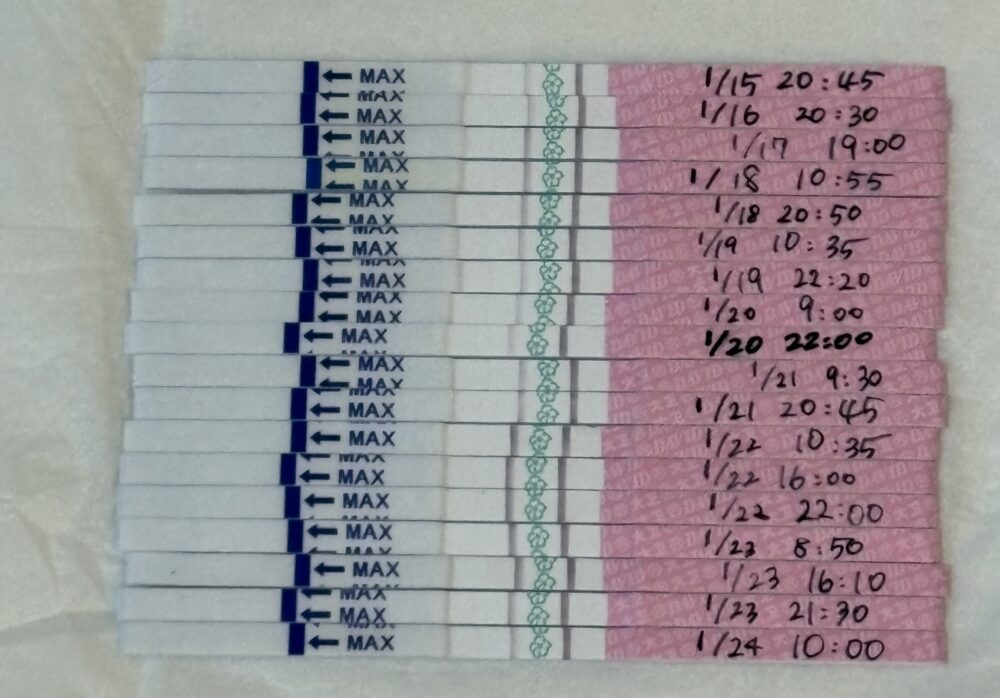 MAX 1/15 20:45
MAX MAX 1/16 20:30
MAX 1/17 19:00
MAX MAX 1/18 10:55
MAX MAX 1/18 20:50
MAX MAX 1/19 10:35
MAX MAX 1/19 22:20
MAX MAX 1/20 9:00
MAX 1/20 22:00
MAX MAX 1/21 9:30
MAX MAX 1/21 20:45
MAX 1/22 10:35
MAX MAX 1/22 16:00
MAX 1/22 22:00
MAX 1/23 8:50
MAX 1/23 16:10
MAX MAX 1/23 21:30
MAX MAX 1/24 10:00